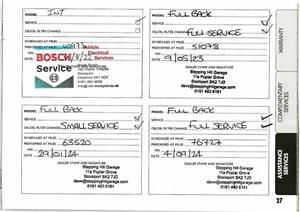 MODEL INT
SERVICE
OIL/OIL FILTER CHANGE
SCHEDULED AT MILES
40973
BOSCH Vehicle Electrical Services
Service
Stockport
DEALER STAMP AND SIGNATURE
MODEL FULL BACK
SERVICE
OIL/OIL FILTER CHANGE FULL SERVICE
SCHEDULED AT MILES
PERFORMED AT MILES 51078
DATE 9/05/23
DEALER STAMP AND SIGNATURE
Stepping Hill Garage
11a Poplar Grove
Stockport SK2 7JD
dave@steppinghillgarage.com
0161 483 6161
MODEL FULL BACK
SERVICE
OIL/OIL FILTER CHANGE SMALL SERVICE
SCHEDULED AT MILES
PERFORMED AT MILES 63520
DATE 29/01/24
DEALER STAMP AND SIGNATURE
Stepping Hill Garage
11a Poplar Grove
Stockport SK2 7JD
dave@steppinghillgarage.com
0161 483 6161
MODEL FULL BACK
SERVICE
OIL/OIL FILTER CHANGE FULL SERVICE
SCHEDULED AT MILES
PERFORMED AT MILES 76727
DATE 4/09/24
DEALER STAMP AND SIGNATURE
Stepping Hill Garage
11a Poplar Grove
Stockport SK2 7JD
dave@steppinghillgarage.com
0161 483 6161
WARRANTY
COMPLIMENTARY SERVICES
ASSISTANCE SERVICES
27